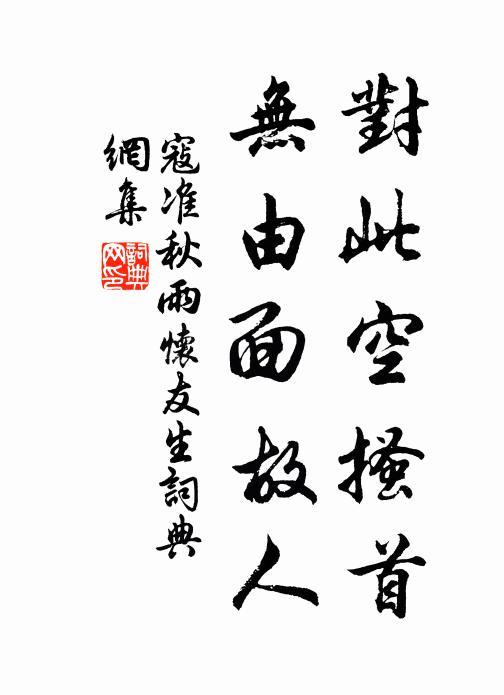 對此空搔首
無由面故人
寇准秋雨懷友生詞典
網集
詞典網印